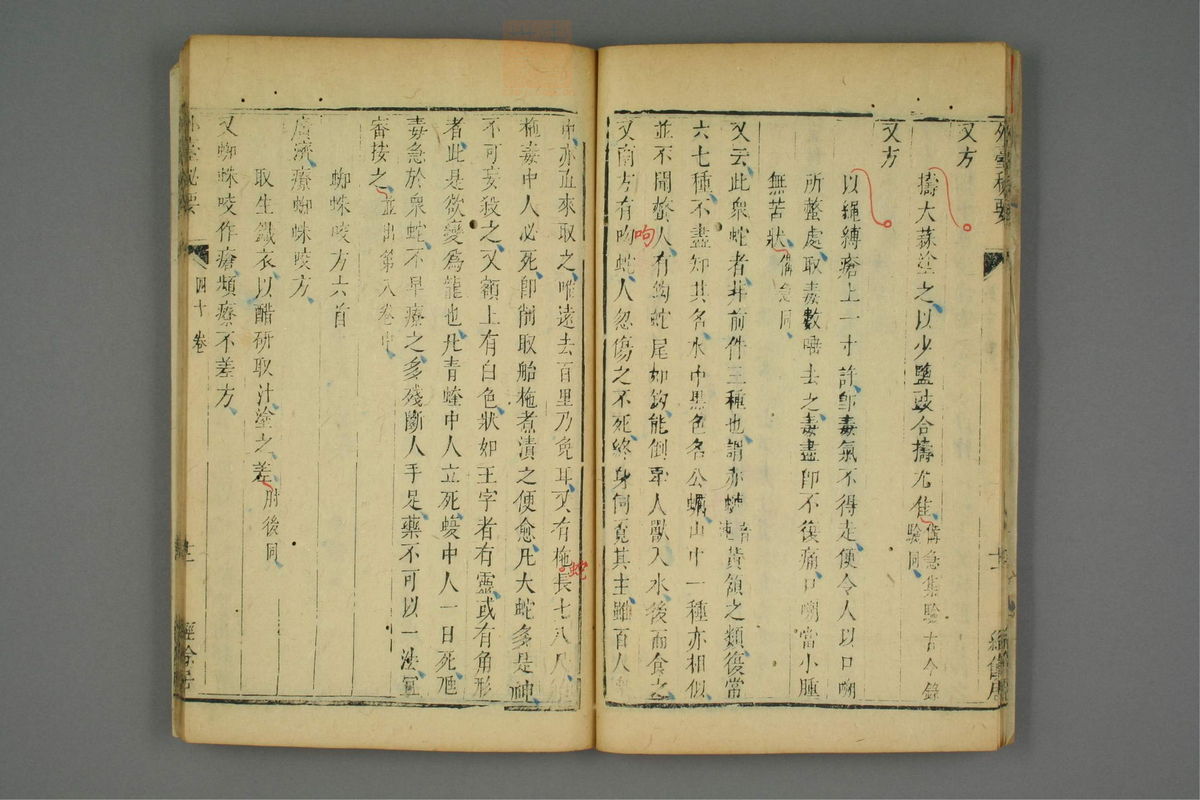 外臺秘要
又方
擣大蒜塗之以少鹽豉合擣尤佳備急集驗古今錄
驗同
又方
以繩縛瘡上一寸許卽毒氣不得走便令人以口嗍
所螫處取毒數唾去之毒盡卽不復痛口嗍當小腫
無苦狀備急同
又云此衆蛇者井前件三種也謂赤
黃頷之類復常
六七種不盡知其名水中黑色名公蠣山中一種亦相似
並不聞螫人有鉤蛇尾如鉤能倒牽人獸入水後而食之
又南方有呴蛇人忽傷之不死終身伺覓其主雖百人
呴
中亦直來取之唯遠去百里乃免耳又有柂長七八尺
蛇
柂毒中人必死卽削取船柂煮漬之便愈凡大蛇多是神
不可妄殺之又額上有白色狀如王字者有靈或有角形
者此是欲變爲龍也凡青蝰中人立死蝮中人一日死虺
毒急於衆蛇不早療之多殘斷人手足藥不可以一法冝
審按之並出第八卷中
蜘蛛咬方六首
廣濟療蜘蛛咬方
取生鐵衣以醋研取汁塗之差肘後同
又蜘蛛咬作瘡頻療不差方
外臺秘要
四十卷
經餘居